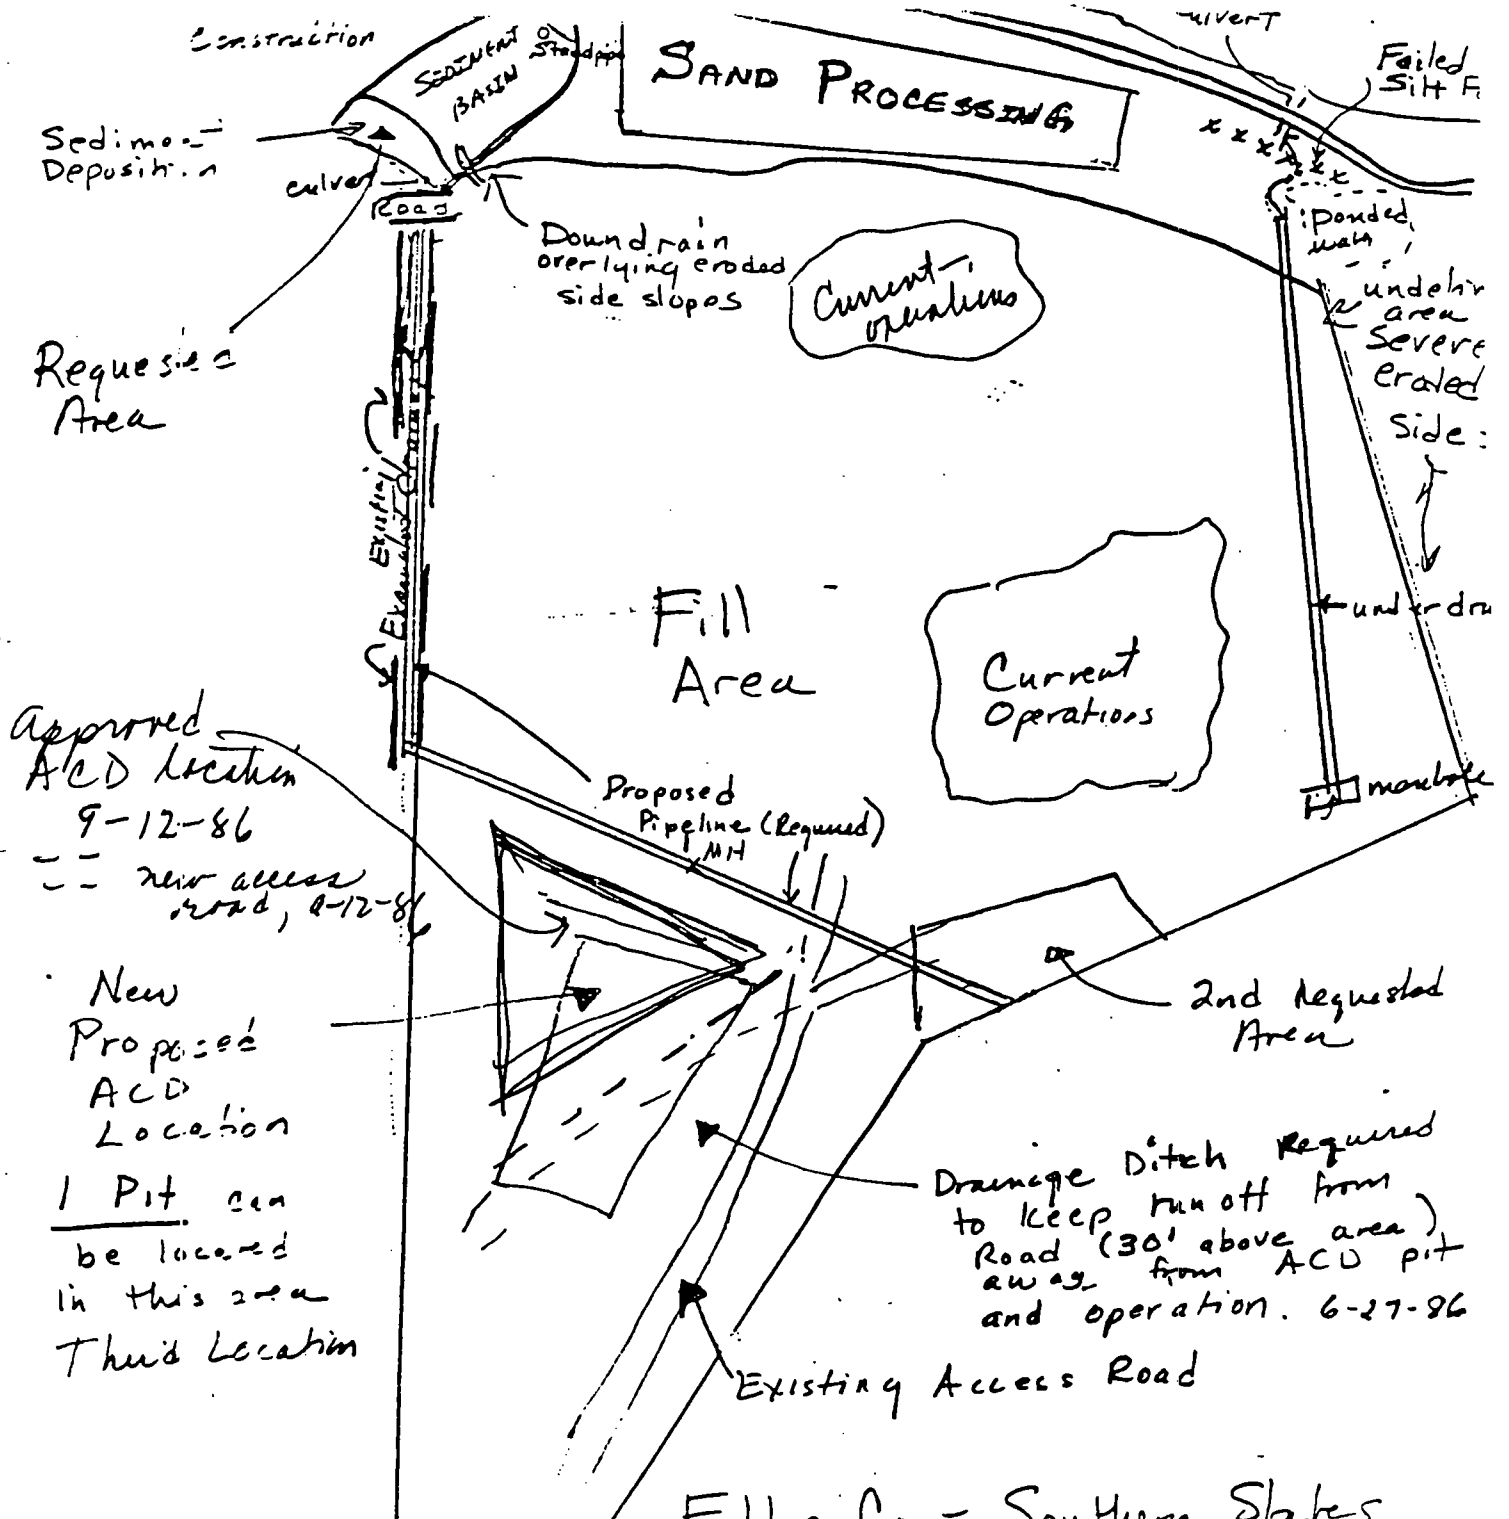 Construction
SEDIMENT
BASIN
Standpipe
SAND PROCESSING
Failed
Silt
Sediment
Deposition
culvert
Road
Downdrain
overlying eroded
side slopes
Current
operations
ponded
area
Severe
eroded
Side
Requested
Area
Existing
Fill
Area
Current
Operations
manhole
Approved
ACD Location
9-12-86
-- new access
road, 9-12-86
Proposed
Pipeline (Required)
MH
New
Proposed
ACD
Location
1 Pit can
be located
in this area
Third Location
2nd Requested
Area
Drainage Ditch Required
to keep runoff from
Road (30' above area)
away from ACD pit
and operation. 6-27-86
Existing Access Road
Co - Southern States